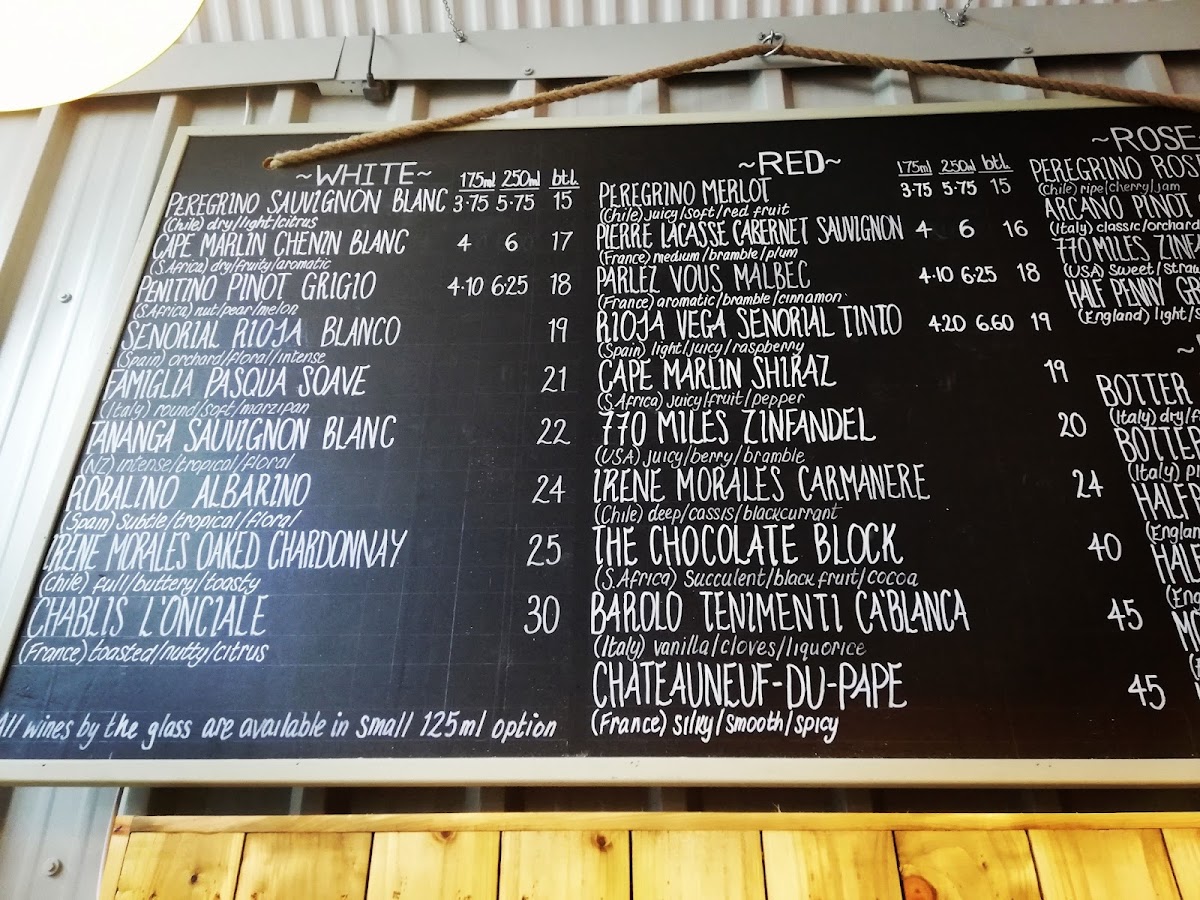 ~WHITE~ 175ml 250ml btl.
PEREGRINO SAUVIGNON BLANC 3·75 5·75 15
(Chile) dry/light/citrus
CAPE MARLIN CHENIN BLANC 4 6 17
(S.Africa) dry/fruity/aromatic
PENITINO PINOT GRIGIO 4·10 6·25 18
(S.Africa) nut/pear/melon
SENORIAL RIOJA BLANCO 19
(Spain) orchard/floral/intense
FAMIGLIA PASQUA SOAVE 21
(Italy) round/soft/marzipan
TANANGA SAUVIGNON BLANC 22
(NZ) intense/tropical/floral
ROBALINO ALBARINO 24
(Spain) subtle/tropical/floral
IRENE MORALES OAKED CHARDONNAY 25
(Chile) full/buttery/toasty
CHABLIS L'ONCIALE 30
(France) toasted/nutty/citrus
All wines by the glass are available in small 125ml option
~RED~ 175ml 250ml btl.
PEREGRINO MERLOT 3·75 5·75 15
(Chile) juicy/soft/red fruit
PIERRE LACASSE CABERNET SAUVIGNON 4 6 16
(France) medium/bramble/plum
PARLEZ VOUS MALBEC 4·10 6·25 18
(France) aromatic/bramble/cinnamon
RIOJA VEGA SENORIAL TINTO 4.20 6.60 19
(Spain) light/juicy/raspberry
CAPE MARLIN SHIRAZ 19
(S.Africa) juicy/fruit/pepper
770 MILES ZINFANDEL 20
(USA) juicy/berry/bramble
IRENE MORALES CARMANERE 24
(Chile) deep/cassis/blackcurrant
THE CHOCOLATE BLOCK 40
(S.Africa) Succulent/black fruit/cocoa
BAROLO TENIMENTI CA'BLANCA 45
(Italy) vanilla/cloves/liquorice
CHATEAUNEUF-DU-PAPE 45
(France) silky/smooth/spicy
~ROSE
PEREGRINO ROS
(Chile) ripe/cherry/jam
ARCANO PINOT
(Italy) classic/orchard
770 MILES ZINF
(USA) Sweet/straw
HALF PENNY GR
(England) light/s
~
BOTTER
(Italy) dry/f
BOTTE
(Italy) p
HALF
(England
HAL
(Eng